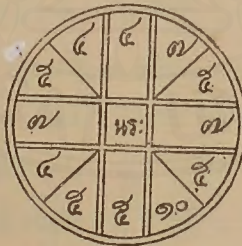 ๔ ๔ ๗
๕ ๕
๗ นระ ๗
๔ ๕
๕ ๕ ๑๐